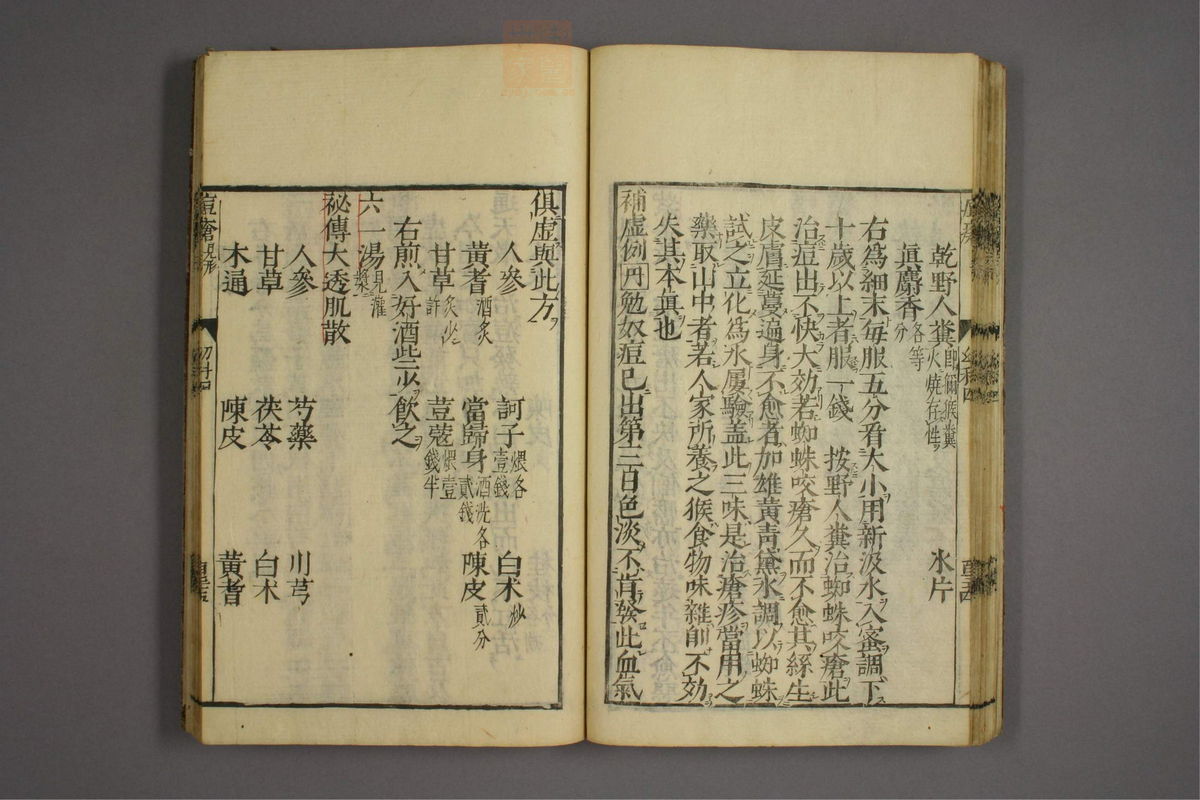 乾野人糞即獼猴糞火燒存性 氷片
真麝香各等分
右為細末每服五分看大小用新汲水入蜜調下
十歲以上者服一錢 按野人糞治蜘蛛咬瘡此
治痘出不快大効若蜘蛛咬瘡久而不愈其絲生
皮膚延蔓遍身不愈者加雄黃青黛水調以蜘蛛
試之立化為水屢驗盖此三味是治瘡疹當用之
藥取山中者若人家所養之猴食物味雜則不効
失其本真也
補虛例 丹 勉奴痘已出第三日色淡不肯發此血氣
俱虛與此方
人參 訶子煨各壹錢 白朮炒
黃耆酒炙 當歸身酒洗各貳錢 陳皮貳分
甘草炙少許 荳蔻煨壹錢半
右煎入好酒些少飲之
六一湯見灌漿
祕傳大透肌散
人參 芍藥 川芎
甘草 茯苓 白朮
木通 陳皮 黃耆
痘瘡見形